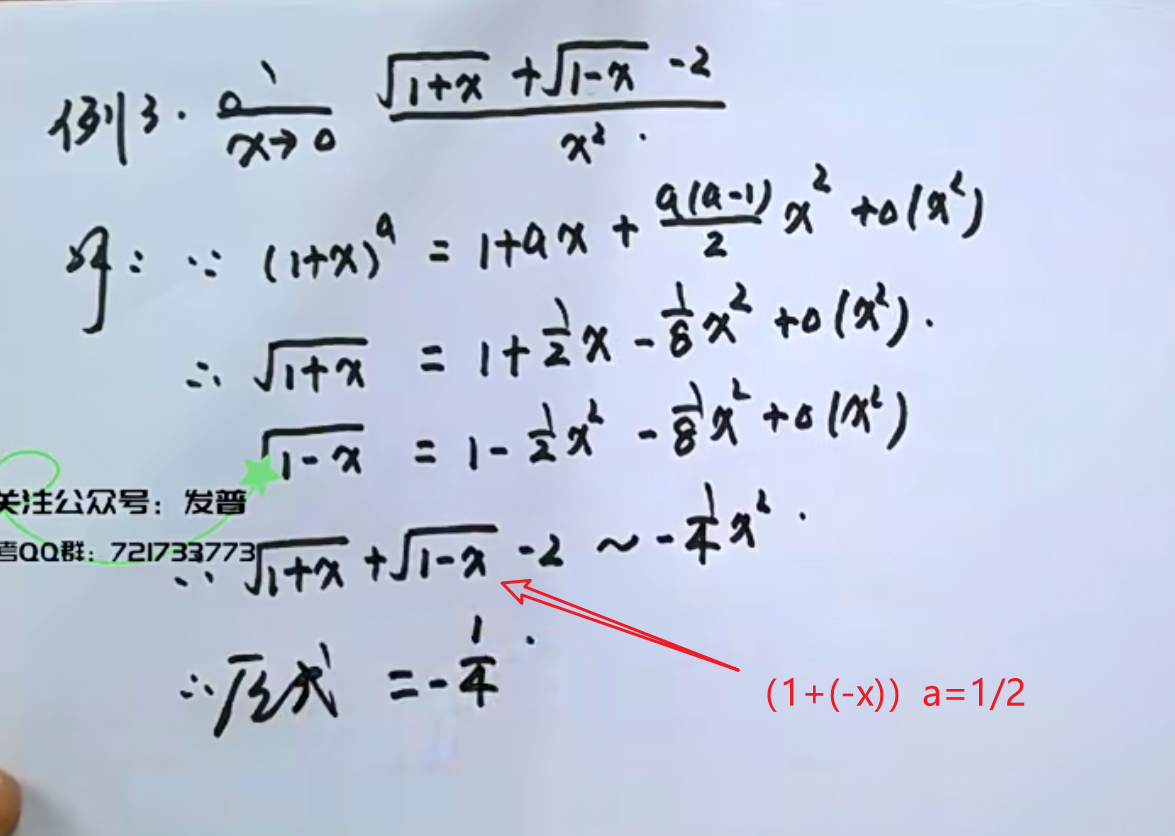 例3. lim x→0 (√(1+x) + √(1-x) - 2)/x².
解: ∵ (1+x)^a = 1+ax + a(a-1)/2 x² + o(x²)
∴ √(1+x) = 1 + 1/2 x - 1/8 x² + o(x²).
√(1-x) = 1 - 1/2 x² - 1/8 x² + o(x²)
关注公众号：发普
考QQ群：721733773
∴ √(1+x) + √(1-x) - 2 ~ - 1/4 x².
∴ 原式 = - 1/4.
(1+(-x)) a=1/2